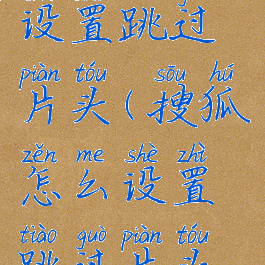 设置跳过
piàn tóu sōu hú
片头(搜狐
zěn me shè zhì
怎么设置
tiào guò piàn tóu
跳过片头